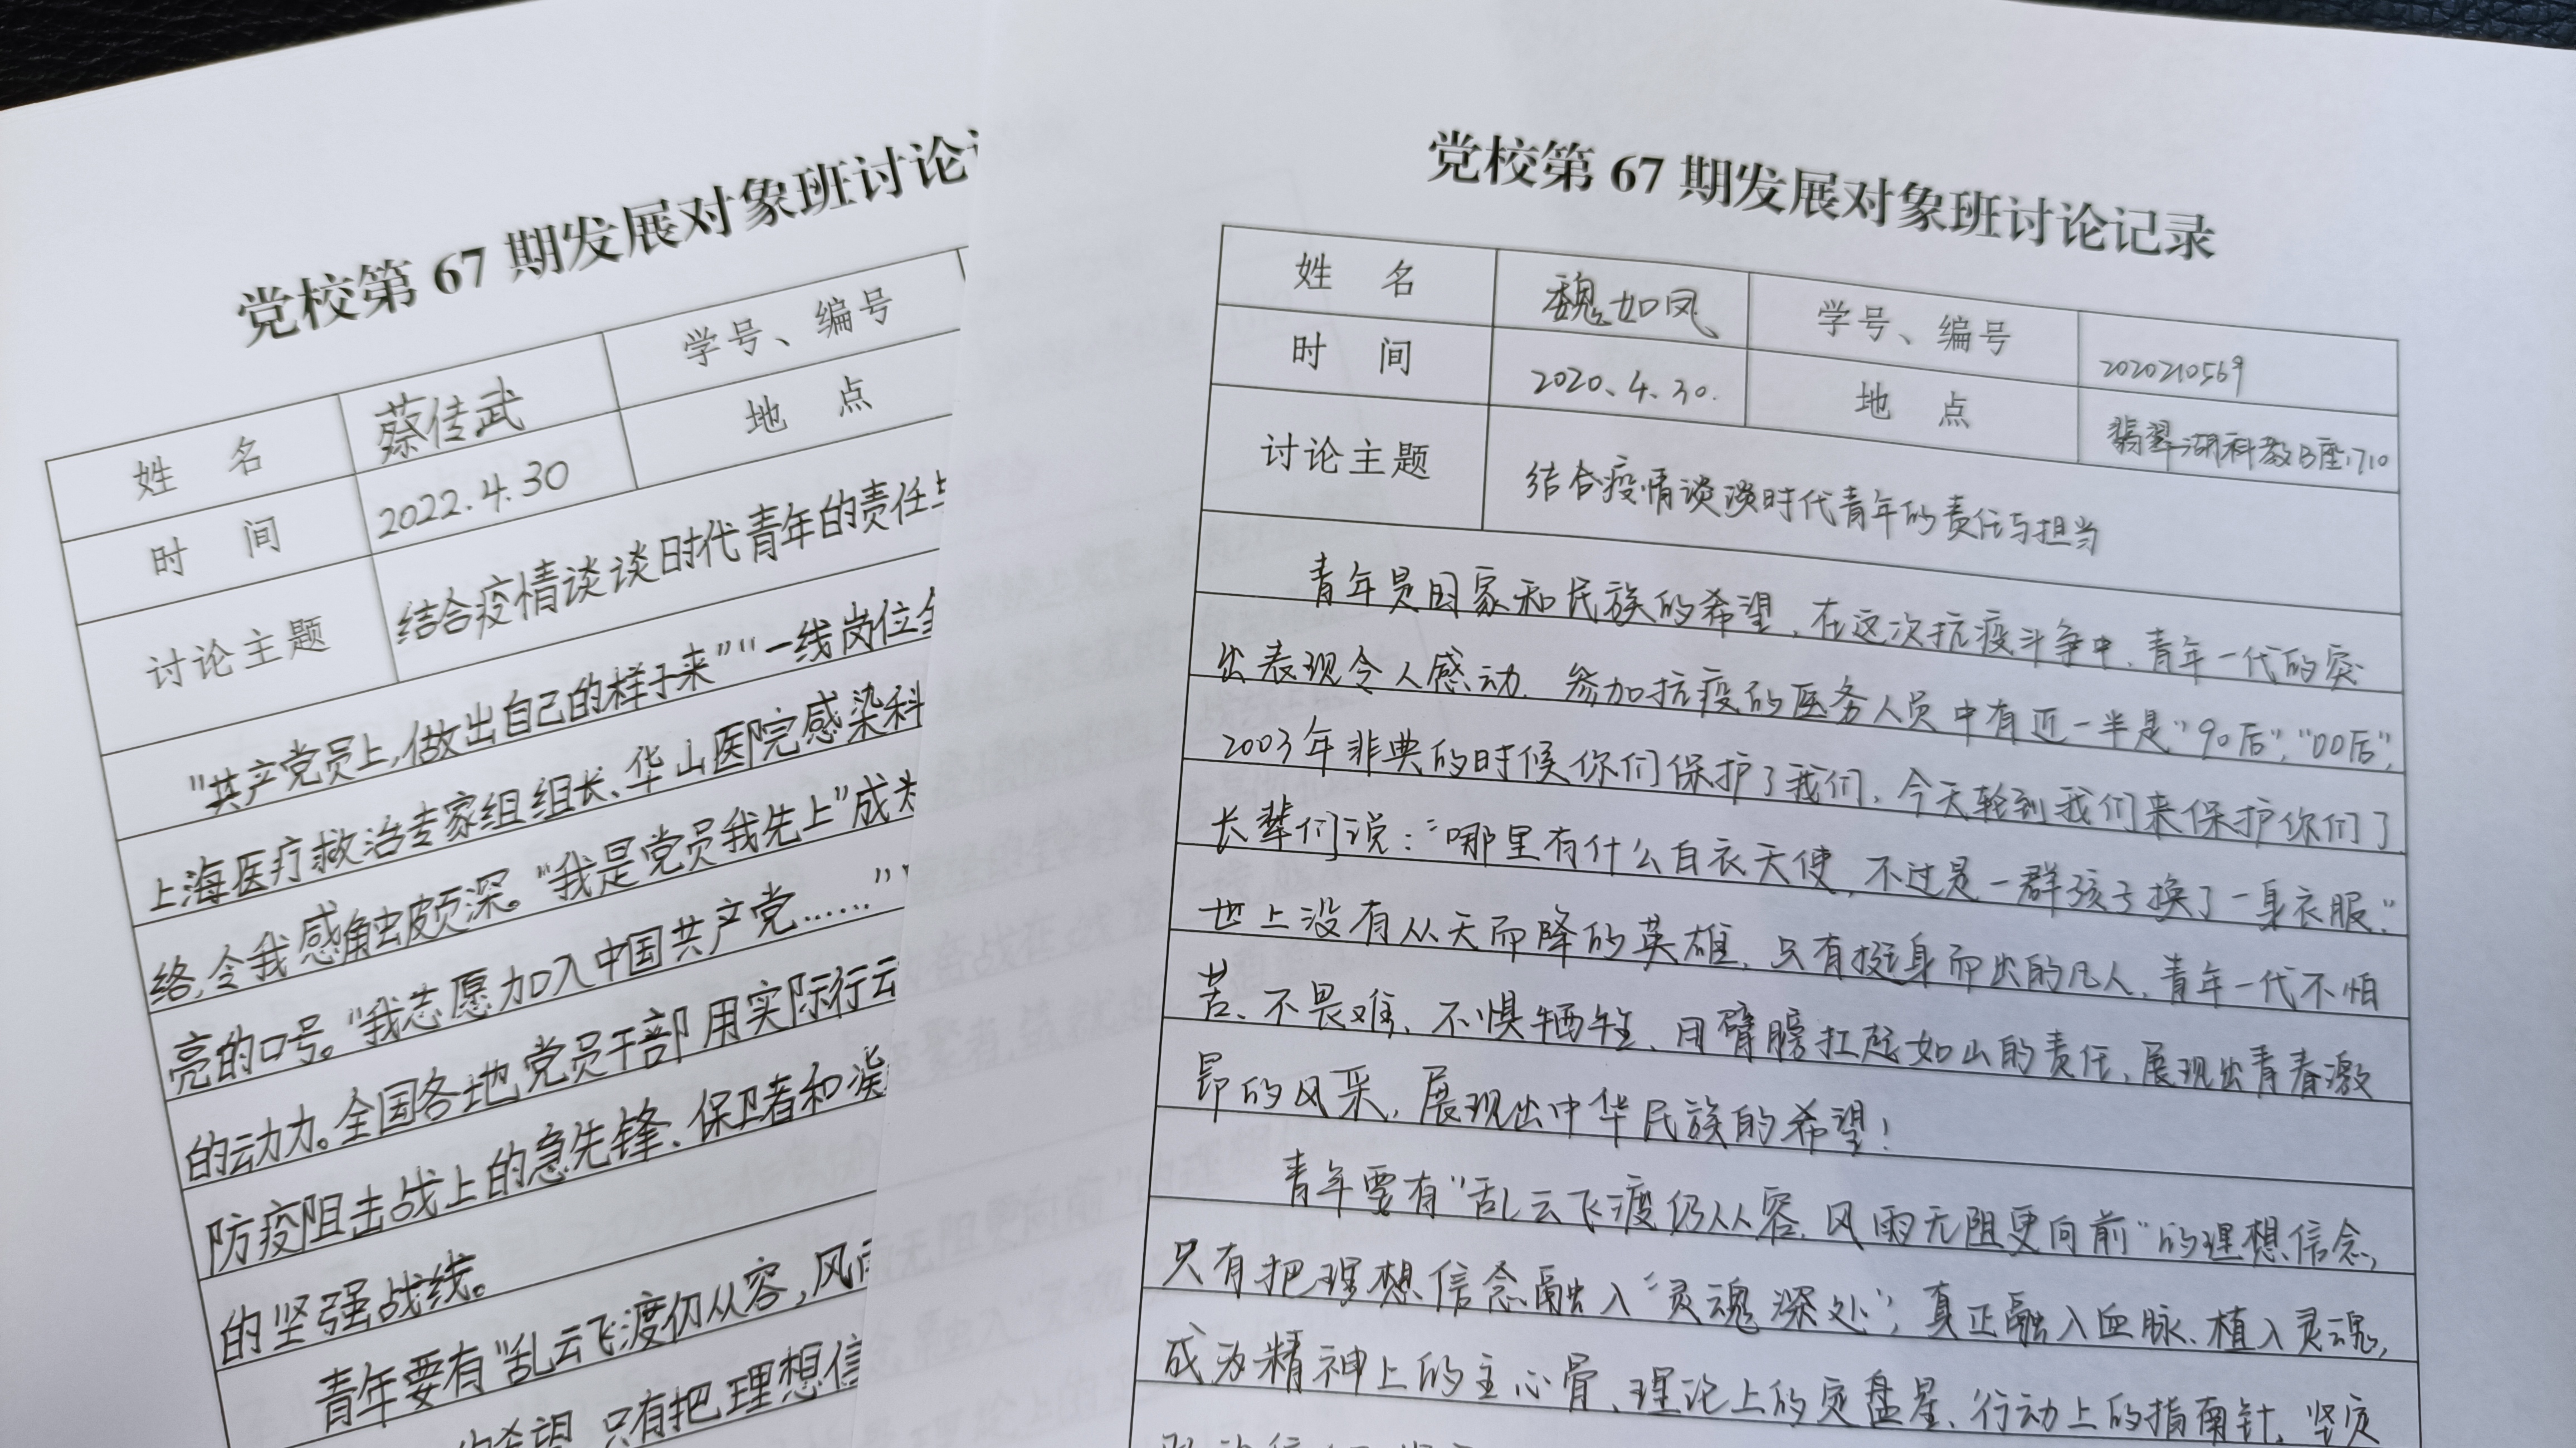 党校第 67 期发展对象班讨论
姓 名 蔡佳武 学号、编号
时 间 2022.4.30 地 点
讨论主题 结合疫情谈谈时代青年的责任
"共产党员上,做出自己的样子来""一线岗位
上海医疗救治专家组组长、华山医院感染科
络,令我感触颇深。"我是党员我先上"成
亮的口号。"我志愿加入中国共产党……"
的动力。全国各地党员干部用实际行动
防疫阻击战上的急先锋、保卫者和
的坚强战线。
青年要有"乱云飞渡仍从容,风
希望,只有把理想信
党校第 67 期发展对象班讨论记录
姓 名 魏如凤 学号、编号 2020210569
时 间 2020.4.30. 地 点 翡翠湖科教B座1710
讨论主题 结合疫情谈谈时代青年的责任与担当
青年是国家和民族的希望,在这次抗疫斗争中,青年一代的突
出表现令人感动.参加抗疫的医务人员中有近一半是"90后","00后",
2003年非典的时候你们保护了我们,今天轮到我们来保护你们了.
长辈们说:"哪里有什么白衣天使,不过是一群孩子换了一身衣服."
世上没有从天而降的英雄,只有挺身而出的凡人,青年一代不怕
苦、不畏难、不惧牺牲、用臂膀扛起如山的责任,展现出青春激
昂的风采,展现出中华民族的希望!
青年要有"乱云飞渡仍从容,风雨无阻更向前"的理想信念,
只有把理想信念融入"灵魂深处",真正融入血脉、植入灵魂,
成为精神上的主心骨、理论上的定盘星、行动上的指南针,坚定